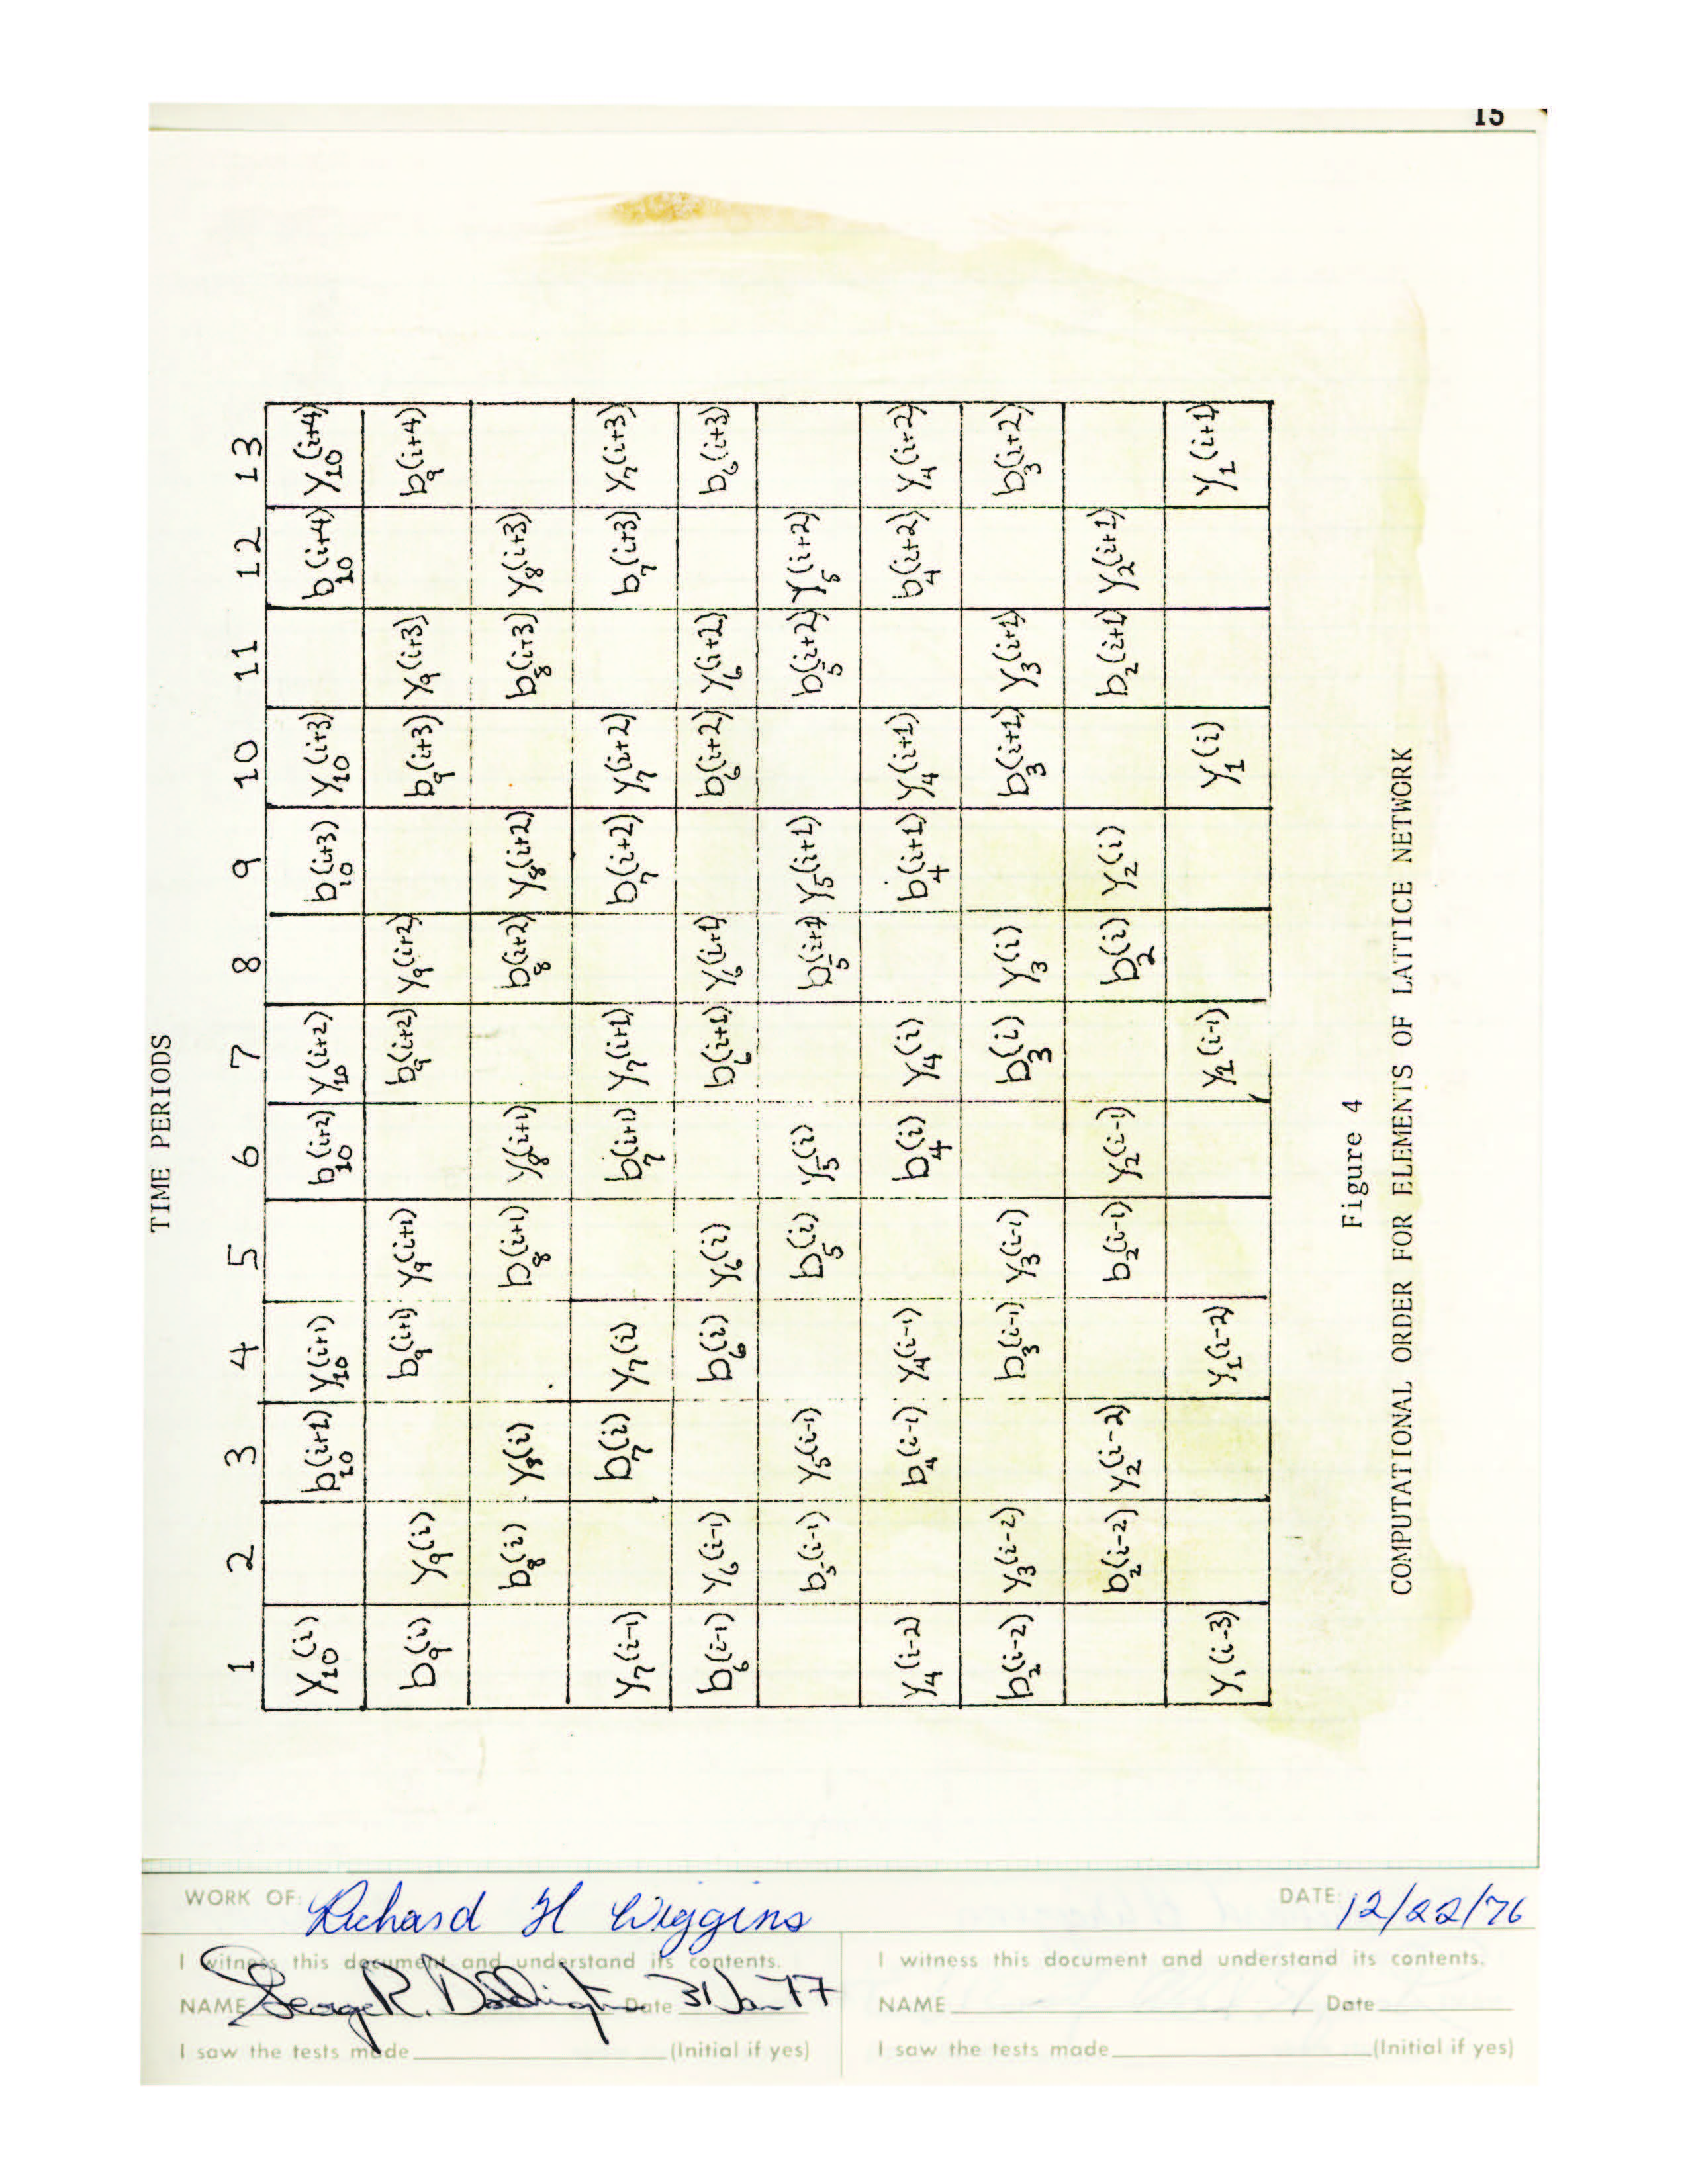 15
TIME PERIODS
1 2 3 4 5 6 7 8 9 10 11 12 13
Y10(i) b10(i+1) Y10(i+1) b10(i+2) Y10(i+2) b10(i+3) Y10(i+3) b10(i+4) Y10(i+4)
b9(i) Y9(i) b9(i+1) Y9(i+1) b9(i+2) Y9(i+2) b9(i+3) Y9(i+3) b9(i+4)
b8(i) Y8(i) b8(i+1) Y8(i+1) b8(i+2) Y8(i+2) b8(i+3) Y8(i+3)
Y7(i-1) b7(i) Y7(i) b7(i+1) Y7(i+1) b7(i+2) Y7(i+2) b7(i+3) Y7(i+3)
b6(i-1) Y6(i-1) b6(i) Y6(i) b6(i+1) Y6(i+1) b6(i+2) Y6(i+2) b6(i+3)
b5(i-1) Y5(i-1) b5(i) Y5(i) b5(i+1) Y5(i+1) b5(i+2) Y5(i+2)
Y4(i-2) b4(i-1) Y4(i-1) b4(i) Y4(i) b4(i+1) Y4(i+1) b4(i+2) Y4(i+2)
b2(i-2) Y3(i-2) b3(i-1) Y3(i-1) b3(i) Y3(i) b3(i+1) Y3(i+1) b3(i+2)
b2(i-2) Y2(i-2) b2(i-1) Y2(i-1) b2(i) Y2(i) b2(i+1) Y2(i+1)
Y1(i-3) Y1(i-2) Y1(i-1) Y1(i) Y1(i+1)
Figure 4
COMPUTATIONAL ORDER FOR ELEMENTS OF LATTICE NETWORK
WORK OF: Richard H Wiggins DATE: 12/22/76
I witness this document and understand its contents.
NAME George R. Doddington Date 31 Jan 77
I saw the tests made (Initial if yes)
I witness this document and understand its contents.
NAME Date
I saw the tests made (Initial if yes)